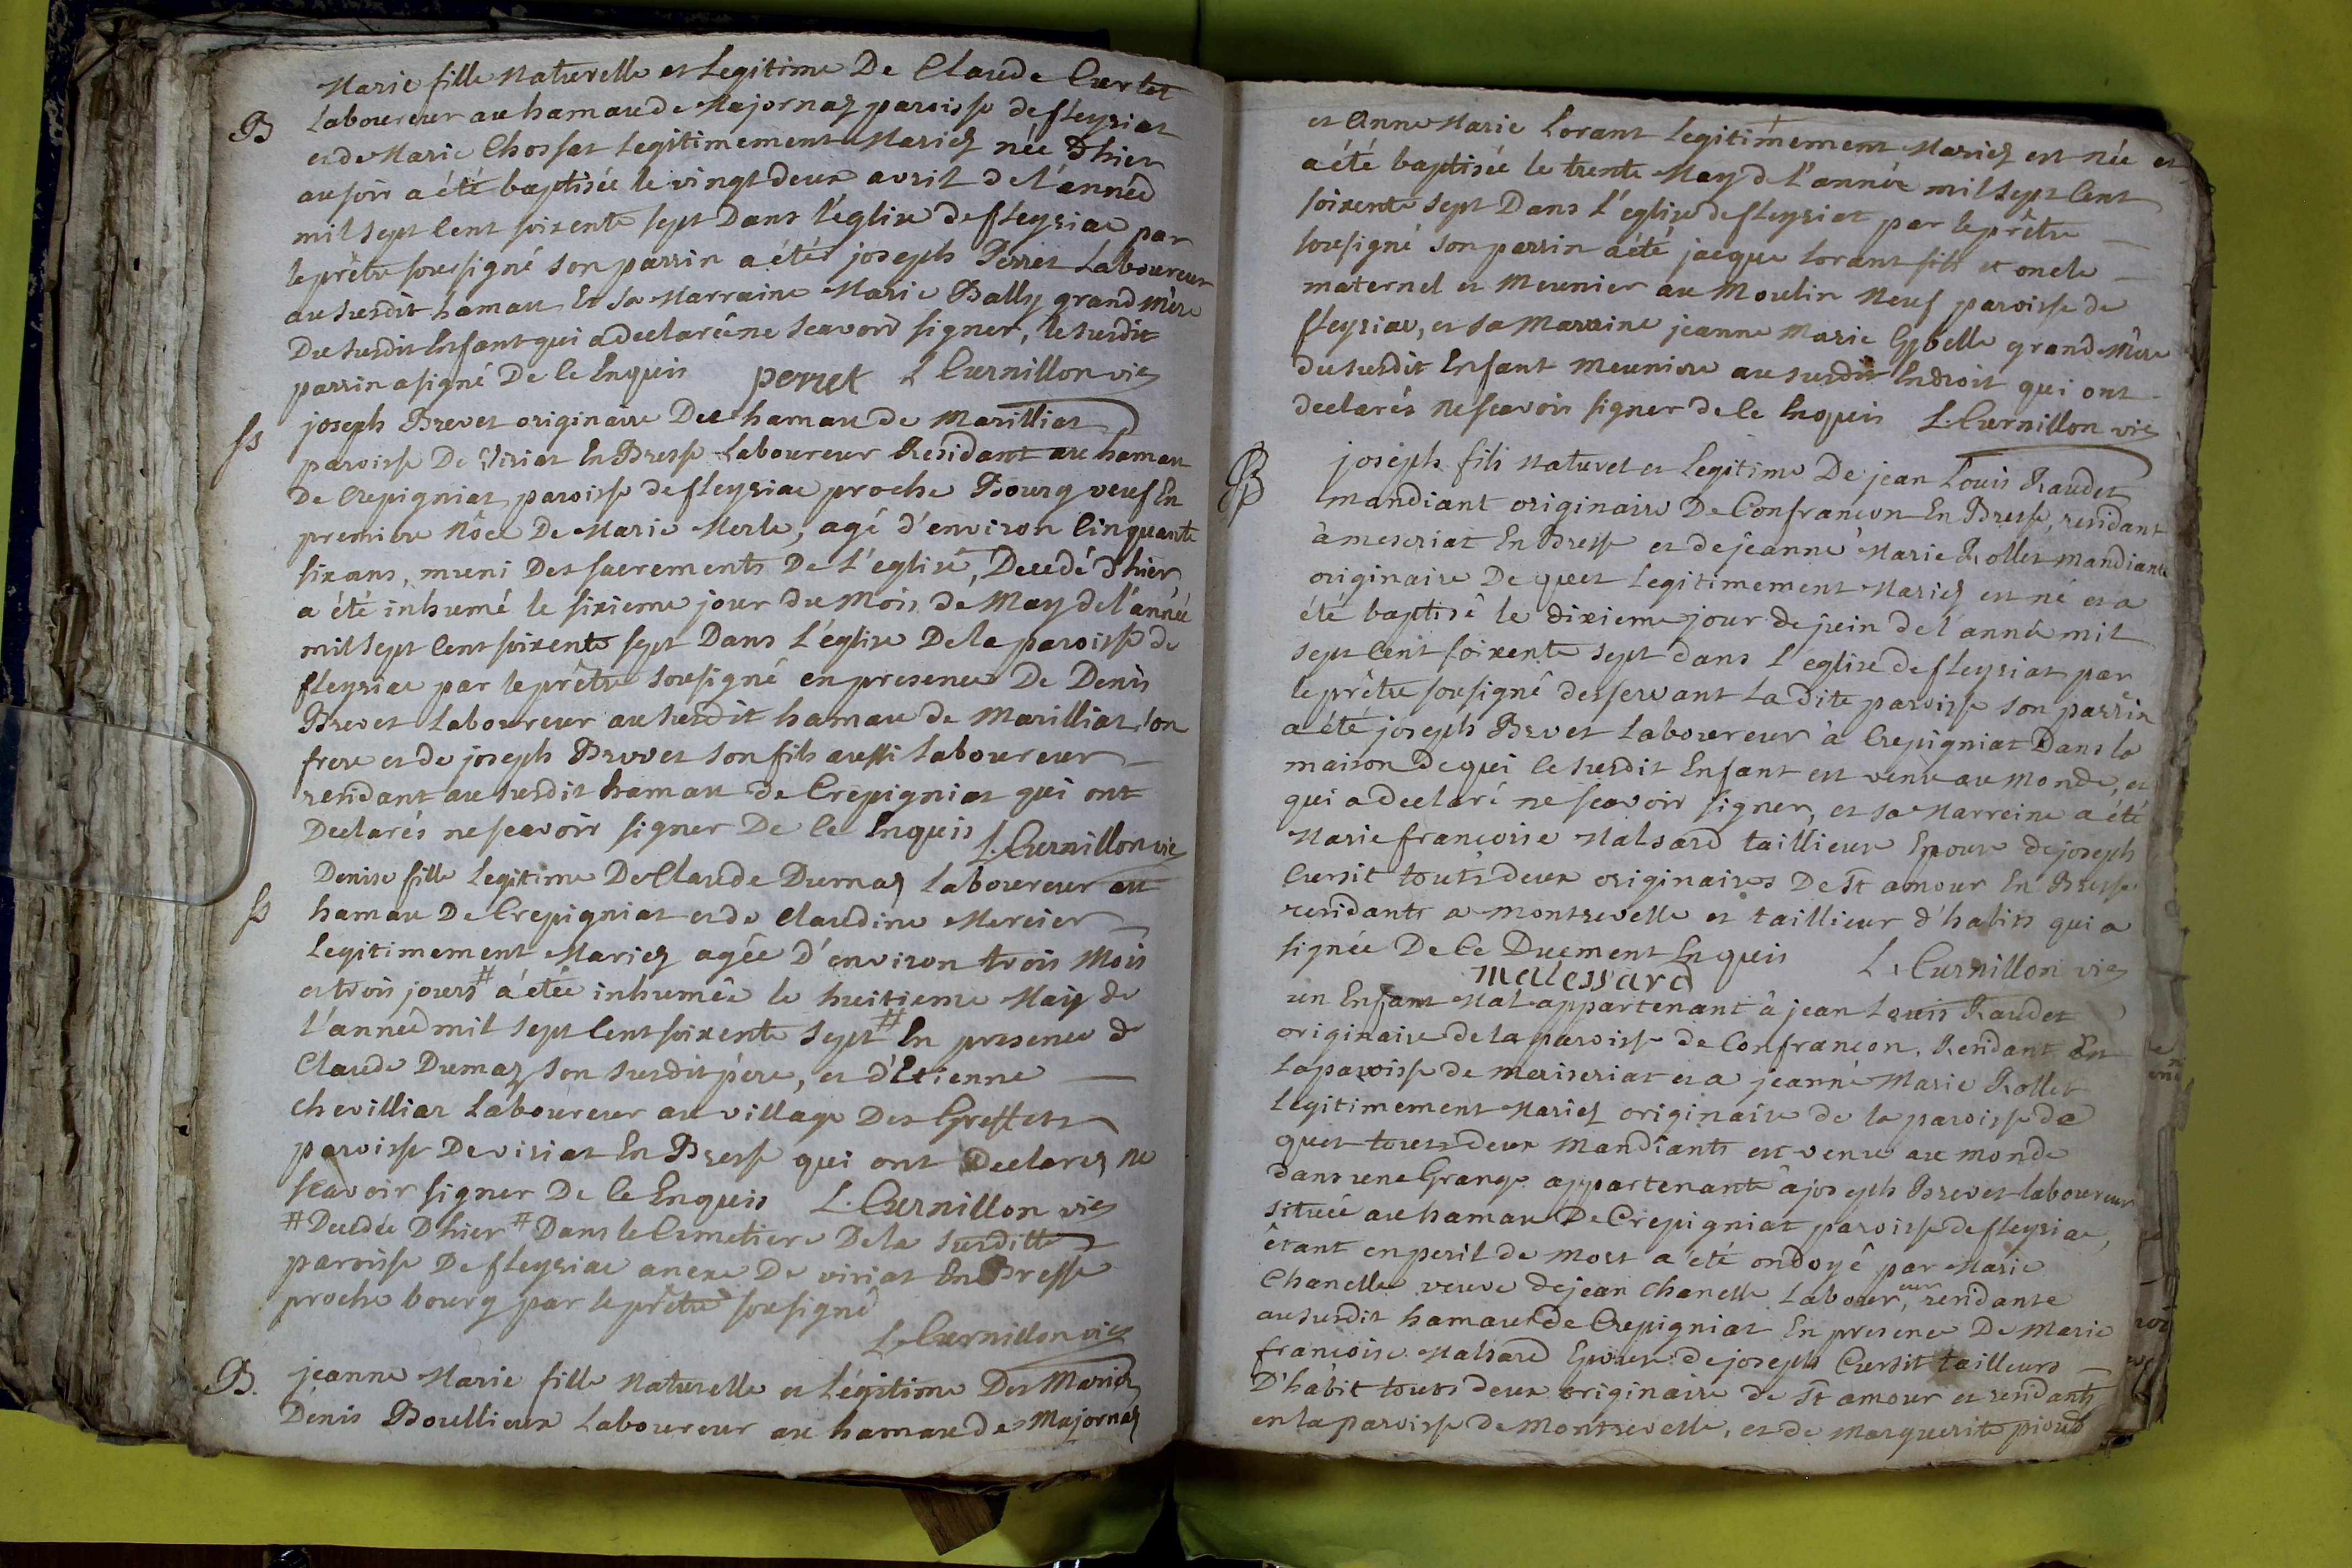 Marie fille Naturelle et Legitime De Claude Curtet
B Laboureur au hamau de Majornaz paroisse de fleyriat
et de Marie Chossat Legitimement Mariez née Dhier
au soir a été baptisée le vingt deux avril de l'année
mil sept Cent soixente sept Dans l'églixe de fleyriac par
le prêtre soussigné son parrin a été joseph Perret Laboureur
au susdit hamau Et Sa Marraine Marie Bally grand Mère
Du susdit Enfant qui a declarée ne Scavoir signer, le susdit
parrin a signé De Ce Enquis perret L Curnillon vic
joseph Brevet originaire Du hamau de Marilliat
S paroisse De Viriat En Bresse Laboureur Residant au hamau
De Crepigniat paroisse de fleyriac proche Bourg veuf En
premiere Nôce De Marie Merle, agé d'environ Cinquante
six ans, muni Des sacrements De L'eglise, Decedé d'hier
a été inhumé le sixieme jour du Mois de May de l'année
mil sept Cent soixente sept Dans L'églixe De la paroisse de
fleyriac par le prêtre sousigné en presence De Denis
Brevet Laboureur au susdit hamau de Marilliat son
frere et de joseph Brevet son fils aussi Laboureur
residant au susdit hamau de Crepigniat qui ont
Declarés ne scavoir signer De Ce Enquis L. Curnillon vic
Denise fille Legitime De Claude Dumaz Laboureur au
S hamau De Crepigniat et de Claudine Mercier
Legitimement Mariez agée d'environ trois Mois
et trois jours # a étée inhumée le huitieme May de
l'année mil sept Cent soixente sept # En presence de
Claude Dumaz son susdit père, et d'Etienne
chevilliat Laboureur au village Des Greffets
paroisse De viriat En Bresse qui ont Declarez ne
scavoir signer De Ce Enquis L. Curnillon vic
# Decedée Dhier # Dans le Cimetiere De la susditte
paroisse De fleyriac anexe De viriat En Bresse
proche bourg par le prêtre sousigné
L. Curnillon vic
B. jeanne Marie fille Naturelle et Légitime Des Mariez
Dénis Boullieux Laboureur au hamau de Majornaz
et Anne Marie Lorant Legitimement Mariez est née et
a été baptisée le trente May de l'année mil sept Cent
soixente sept Dans L'eglise de fleyriat par le prêtre
sousigné son parrin a été jacque Lorant fils et oncle
maternel et Meunier au Moulin Neuf paroisse de
fleyriac, et sa Marraine jeanne Marie Gybelle grand Mère
du susdit Enfant meuniere au susdit Endroit qui ont
declarés ne scavoir signer de Ce Enquis L. Curnillon vic
B joseph fils Naturel et Legitime De jean Louis Raudet
mandiant originaire De Confrançon En Bresse, residant
à meseriat En Bresse et de jeanne Marie Rollet mandiante
originaire De quet Legitimement Mariez est né et a
été baptisé le dixieme jour de juin de l'année mil
sept Cent soixente sept dans l'eglise de fleyriat par
le prêtre sousigné desservant La dite paroisse son parrin
a été joseph Brevet Laboureur à Crepigniat Dans la
maison de qui le susdit Enfant est venu au monde, et
qui a declaré ne scavoir signer, et sa Marreine a été
Marie francoise Malsard taillieuse Epouse de joseph
Cursit touts deux originaires De St amour En Bresse
residants a Montrevelle et taillieur d'habits qui a
signée De Ce Duement Enquis L. Curnillon vic
malessard
un Enfant Mal appartenant à jean Louis Raudet
originaire de la paroisse de Confrançon, Residant En
La paroisse de meriseriat et a jeanne Marie Rollet
Legitimement Mariez originaire de la paroisse de
quet touts deux Mandiants est venu au monde
dans une Grange appartenante à joseph Brevet laboureur
située au hamau De Crepigniat paroisse de fleyriac,
étant en peril de mort a été ondoyé par Marie
Chanelle veuve de jean Chanelle Laboureur, residante
au susdit hamau de Crepigniat En presence De Marie
francoise Malsard Epouse de joseph Cursit tailleurs
D'habit touts deux originaire de St amour et residants
en la paroisse de Montrevelle, et de Marguerite pioud